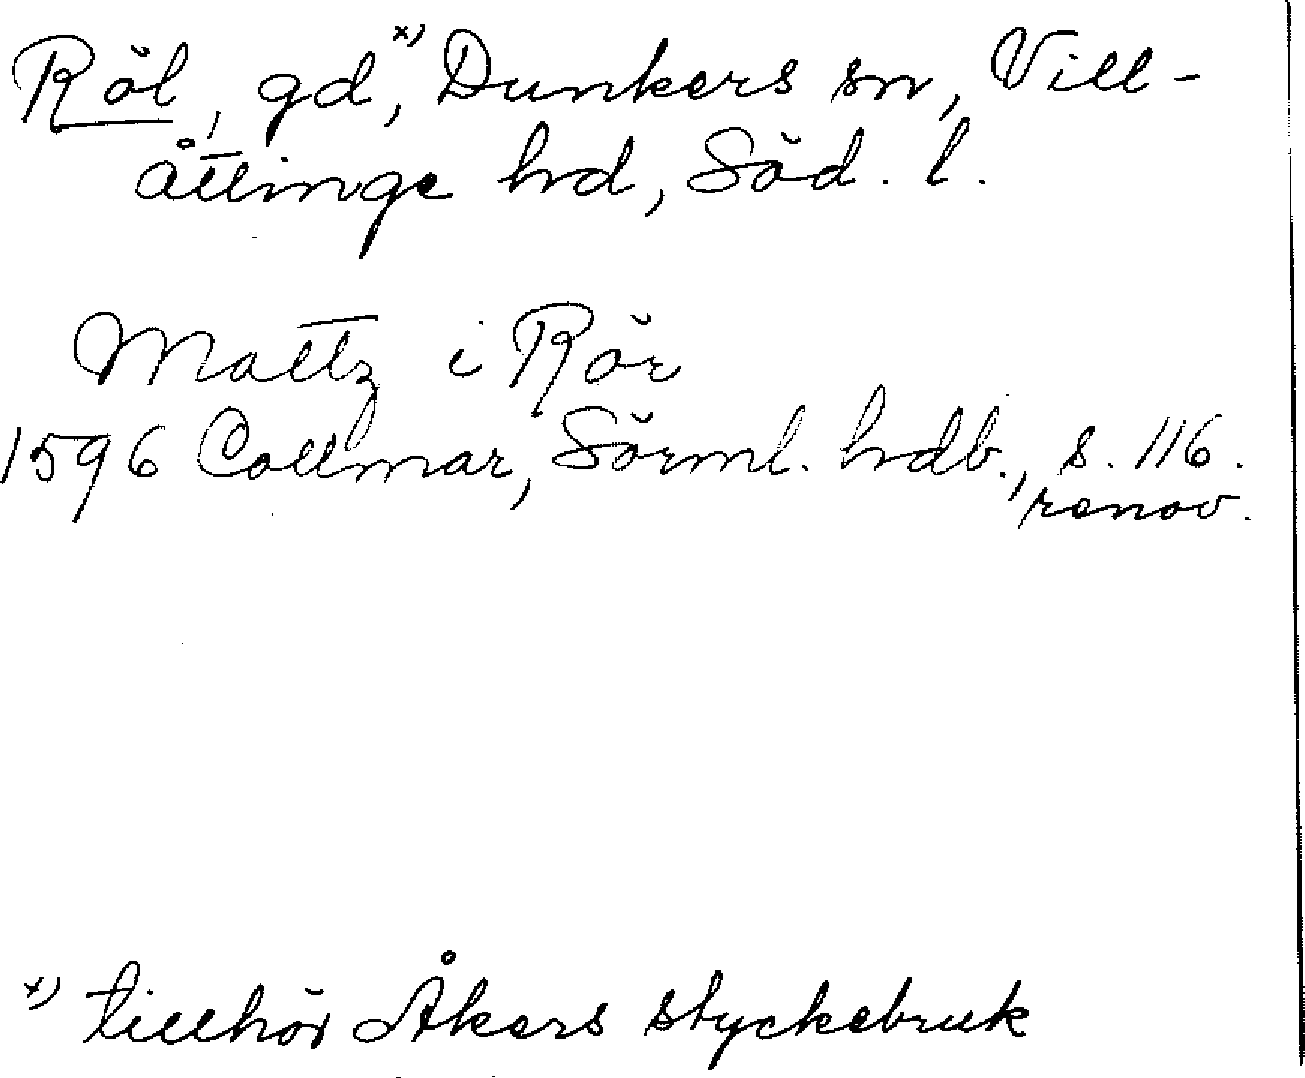 Röl, gd,x) Dunkers sn, Vill-
åttinge hd, Söd. l.
Mattz i Rör
1596 Collmar, Sörml. hdb., s. 116.
renov.
x) tillhör Åkers styckebruk